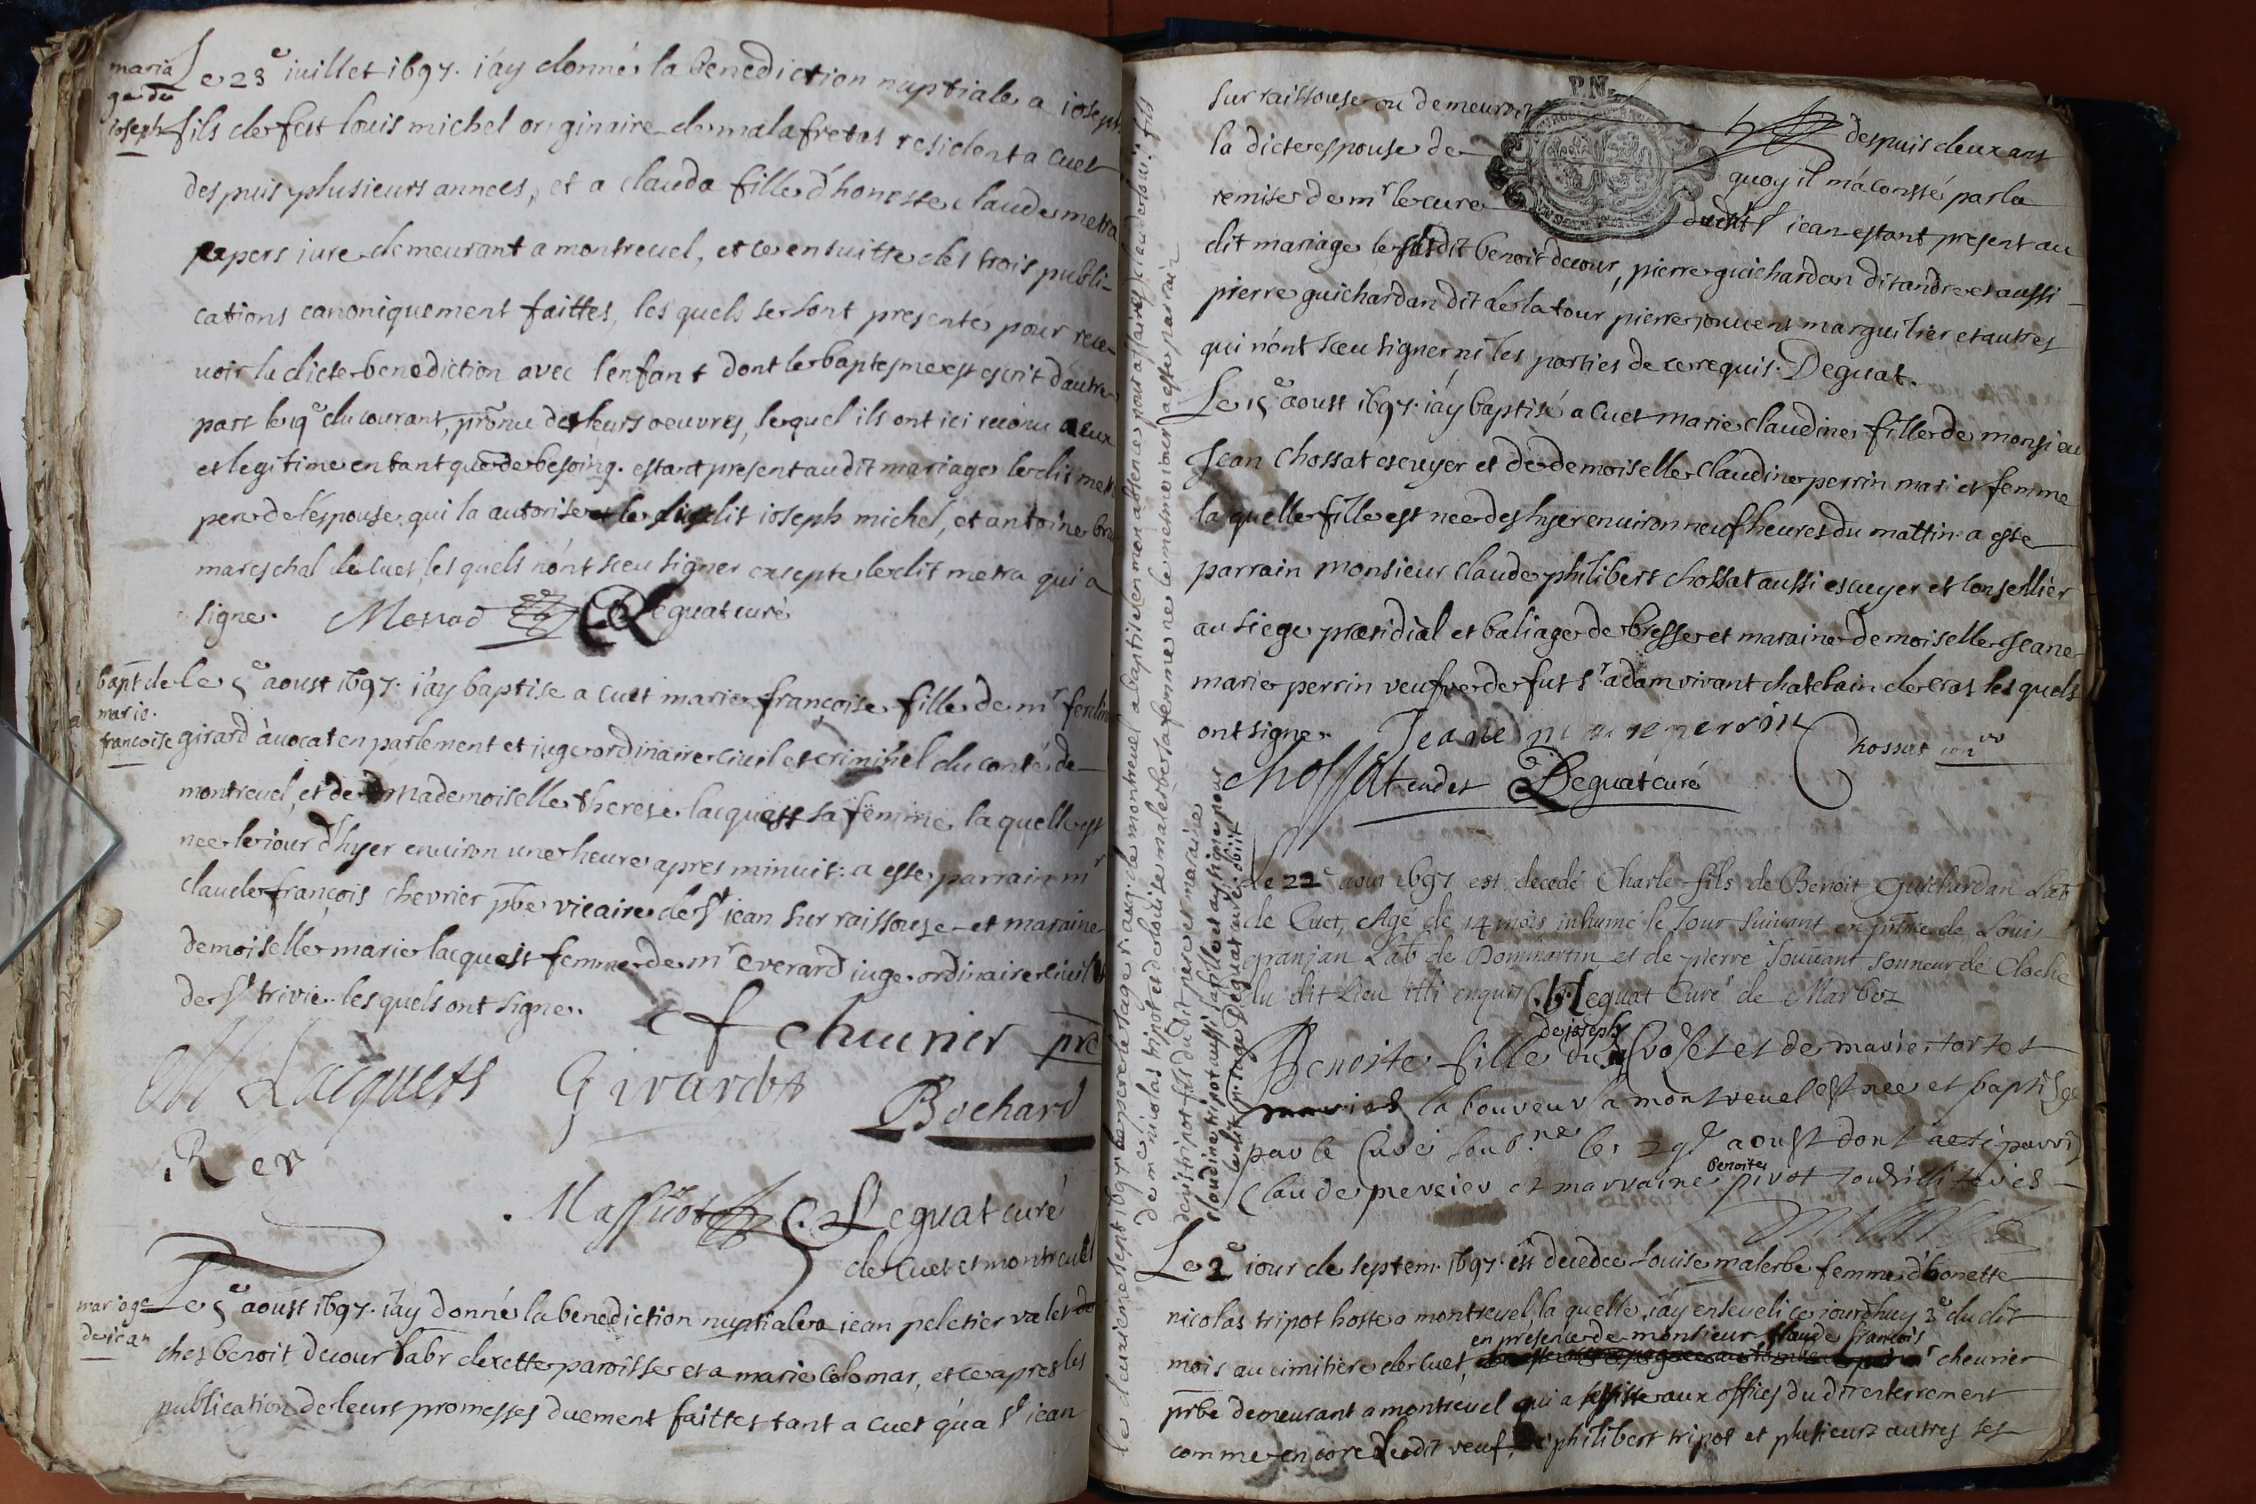 maria
ge de
ioseph
Le 23e iuillet 1697. i'ay donné la benediction nuptiale a ioseph
fils de feu louis michel originaire de malafretas resident a cuet
despuis plusieurs annees, et a clauda fille d'honeste claude metra
expers iuré demeurant a montreuel, et ce en suitte des trois publi-
cations canoniquement faittes, les quels se sont presente pour rece-
uoir la dicte benediction auec l'enfant dont le baptesme est escrit d'autre
part le 19e du courant, prouenu de leurs oeuures, lequel ils ont ici reconu a eux
et legitime en tant que de besoing. estant present au dit mariage le dit met
pere de l'espouse qui la autorise le dit ioseph michel, et antoine
mareschal de cuet, les quels n'ont sceu signer excepte le dit metra qui a
signe. Metrad Deguat curé
bapt de
marie.
francoise
le 5e aoust 1697. i'ay baptise a cuet marie françoise fille de mr
girard auocat en parlement et iuge ordinaire ciuil et criminel du conté de
montreuel, et de mademoiselle therese lacquets sa femme la quelle est
nee le iour d'hyer enuiron une heure apres minuit: a este parrain mr
claude françois cheurier pbre vicaire de st iean sur raissouse et maraine
demoiselle marie lacquet femme de mr euerard iuge ordinaire ciuil
de st triuie. les quels ont signe.
cf cheurier pre
M Lacquets Girard Bochard
Rey
Massuot C. Deguat curé
de cuet et montreuel
mariage
de iean
Le 5e aoust 1697. i'ay donné la benediction nuptiale a iean peletier valet de
ches benoit decour labr de cette paroisse et a marie colomar, et ce apres les
publication de leurs promesses duement faittes tant a cuet qu'a st iean
sur raissouse ou demeuroit despuis deux ans
la dicte espouse de quoy il m'a consté par la
remise de mr le curé dudit st iean estant present au
dit mariage le susdit benoit decour, pierre guichardan dit andre et aussi
pierre guichardan dit de la tour pierre iouuent marguilier et autres
qui n'ont sceu signer ni les parties de ce requis. Deguat.
Le 15e aoust 1697. i'ay baptisé a cuet marie claudine fille de monsieu
Jean chossat escuyer et de demoiselle claudine perrin mari et femme
la quelle fille est nee des hyer enuiron neuf heures du mattin. a este
parrain monsieur claude philibert chossat aussi escuyer et conseillier
au siege præsidial et baliage de bresse et maraine demoiselle Jeane
marie perrin veufue de fut sr adam viuant chatelain de cras les quels
ont signe. Jeane marie perrin Chossat
chossat cadet Deguat curé
Le 22e aout 1697 est decedé Charle fils de Benoit Guichardan Lab
de Cuet, Agé de 14 mois inhumé le Jour suivant en presence de Louis
granjan Lab de Dommartin et de pierre Jouuant sonneur de Cloche
du dit Lieu illi enquis Deguat Curé de Marboz
de joseph
Benoite fille du et de marie tortet
mariés laboureur a montreuel est nee et baptisee
par le Curé soub.né le 29e aoust dont a eté parrin
benoite
Claude mercier et marraine pivot tous illiterés
Le 2e iour de septem. 1697. est decedee Louise malerbe femme d'honette
nicolas tripot hoste a montreuel la quelle i'ay enseueli ce iourd'huy 3e du dit
en presence de monsieur claude francois
mois au cimitiere de cuet, cheurier
prbe demeurant a montreuel qui a assisté aux offices du dit enterrement
comme encore le dit veuf, philibert tripot et plusieurs autres ses
le deuxieme sept 1697 le pere le sage vicaire de montreuel a baptise en mon absence pour affaires, claude louis fils
de mr nicolas tripot et de louise malerbe sa femme ne le mesme iour a este parrain
denis tripot fils du dit pere et maraine
claudine tripot aussi sa fille et ay signe pour
le dit p. sage Deguat curé. obiit